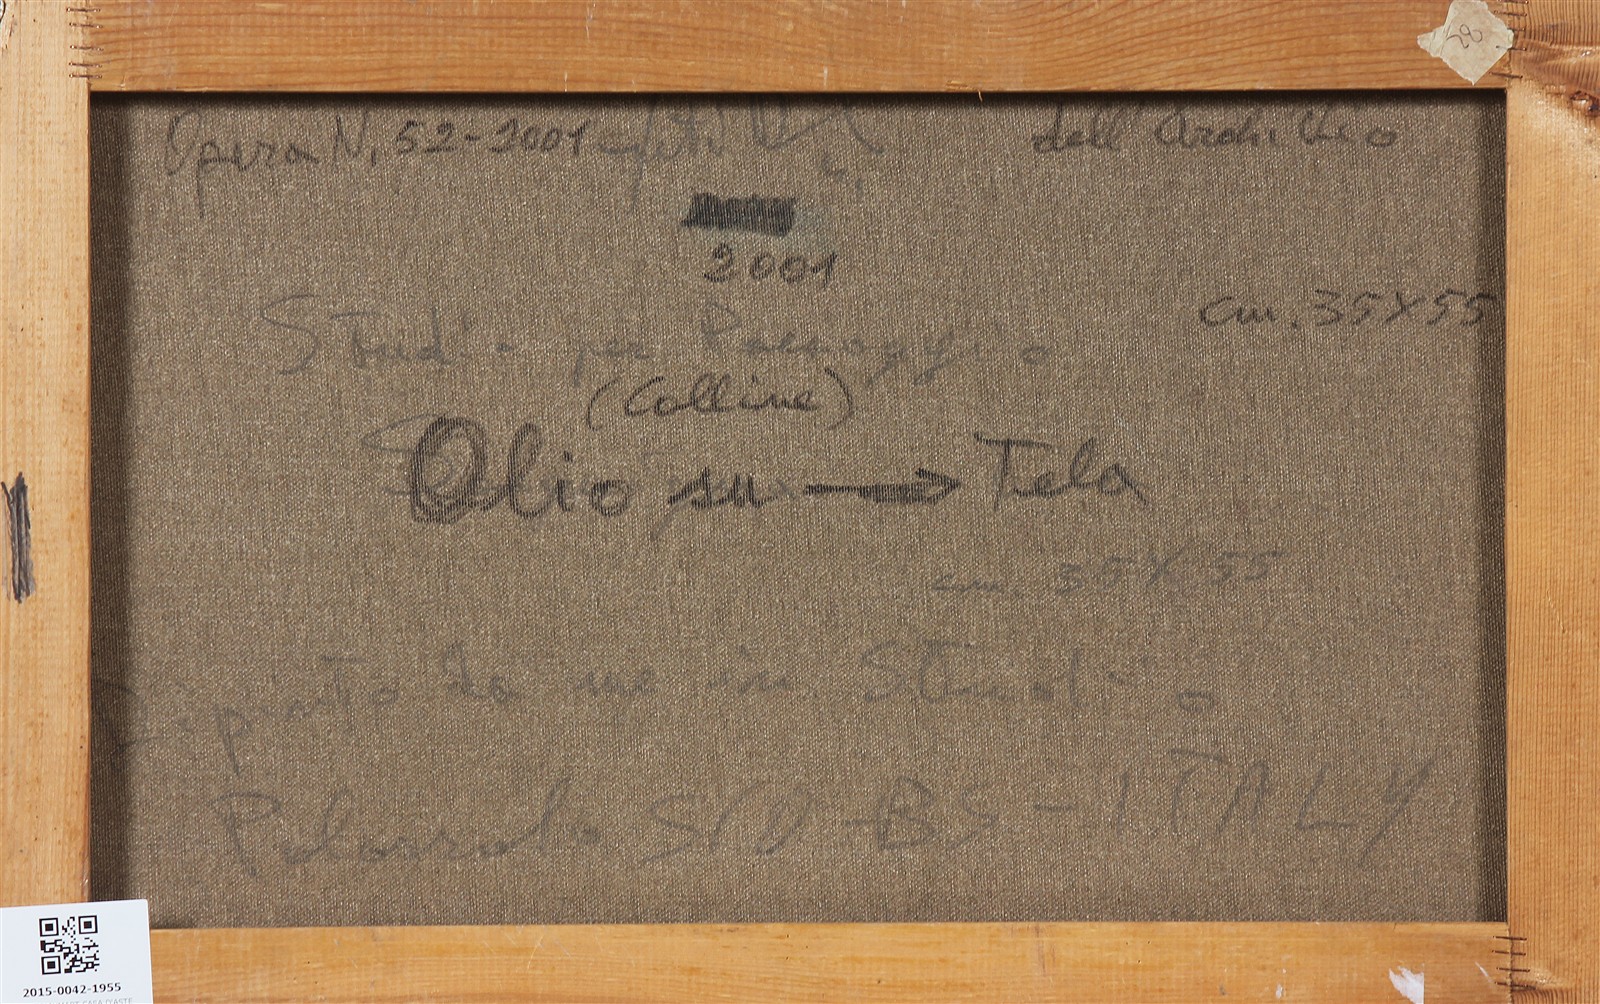 28
Opera N. 52-2001 dell'Archivio
2001
cm. 35X55
Studio per Paesaggio
(Colline)
Olio su → Tela
cm. 35X55
Dipinto da me in Studio
S/O - BS - ITALY
2015-0042-1955